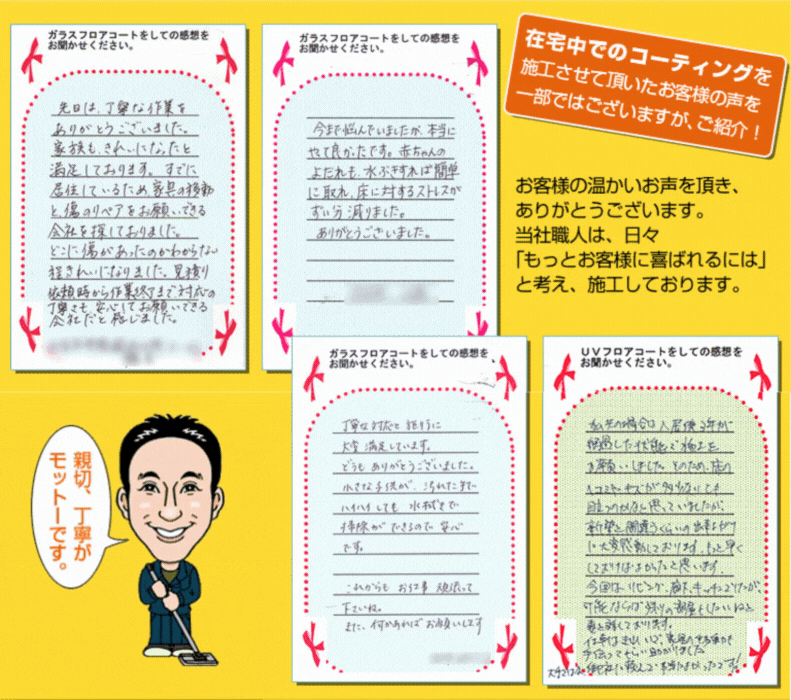 ガラスフロアコートをしての感想を
お聞かせください。
先日は、丁寧な作業を
ありがとうございました。
家族も、きれいになったと
満足しております。すでに
居住しているため家具の移動
と、傷のリペアをお願いできる
会社を探しておりました。
どこに傷があったのかわからない
程きれいになりました。見積り
依頼時から作業終了まで対応の
丁寧さも、安心してお願いできる
会社だと感じました。
ガラスフロアコートをしての感想を
お聞かせください。
今まで悩んでいましたが、本当に
やって良かったです。赤ちゃんの
よだれも、水ぶきすれば簡単
に取れ、床に対するストレスが
ずい分減りました。
ありがとうございました。
在宅中でのコーティングを
施工させて頂いたお客様の声を
一部ではございますが、ご紹介！
お客様の温かいお声を頂き、
ありがとうございます。
当社職人は、日々
「もっとお客様に喜ばれるには」
と考え、施工しております。
ガラスフロアコートをしての感想を
お聞かせください。
丁寧な対応と
大変満足しています。
どうもありがとうございました。
小さな子供が、汚れた手で
ハイハイしても 水拭きで
掃除ができるので 安心
です。
これからも お仕事 頑張って
下さいね。
また、何かあればお願いします
UVフロアコートをしての感想を
お聞かせください。
私共の場合は入居後2年が
経過した状態で施工を
お願いしました。そのため、床の
ヘコミやキズが多少なりとも
目立つのかなと思っていましたが、
新築と間違うくらいの出来上がり
に大変感動しております。もっと早く
しておけばよかったと思います。
今回はリビング、廊下、キッチンでしたが、
可能ならば残りの部屋もしたいねと
妻と話しております。
親切、丁寧が
モットーです。